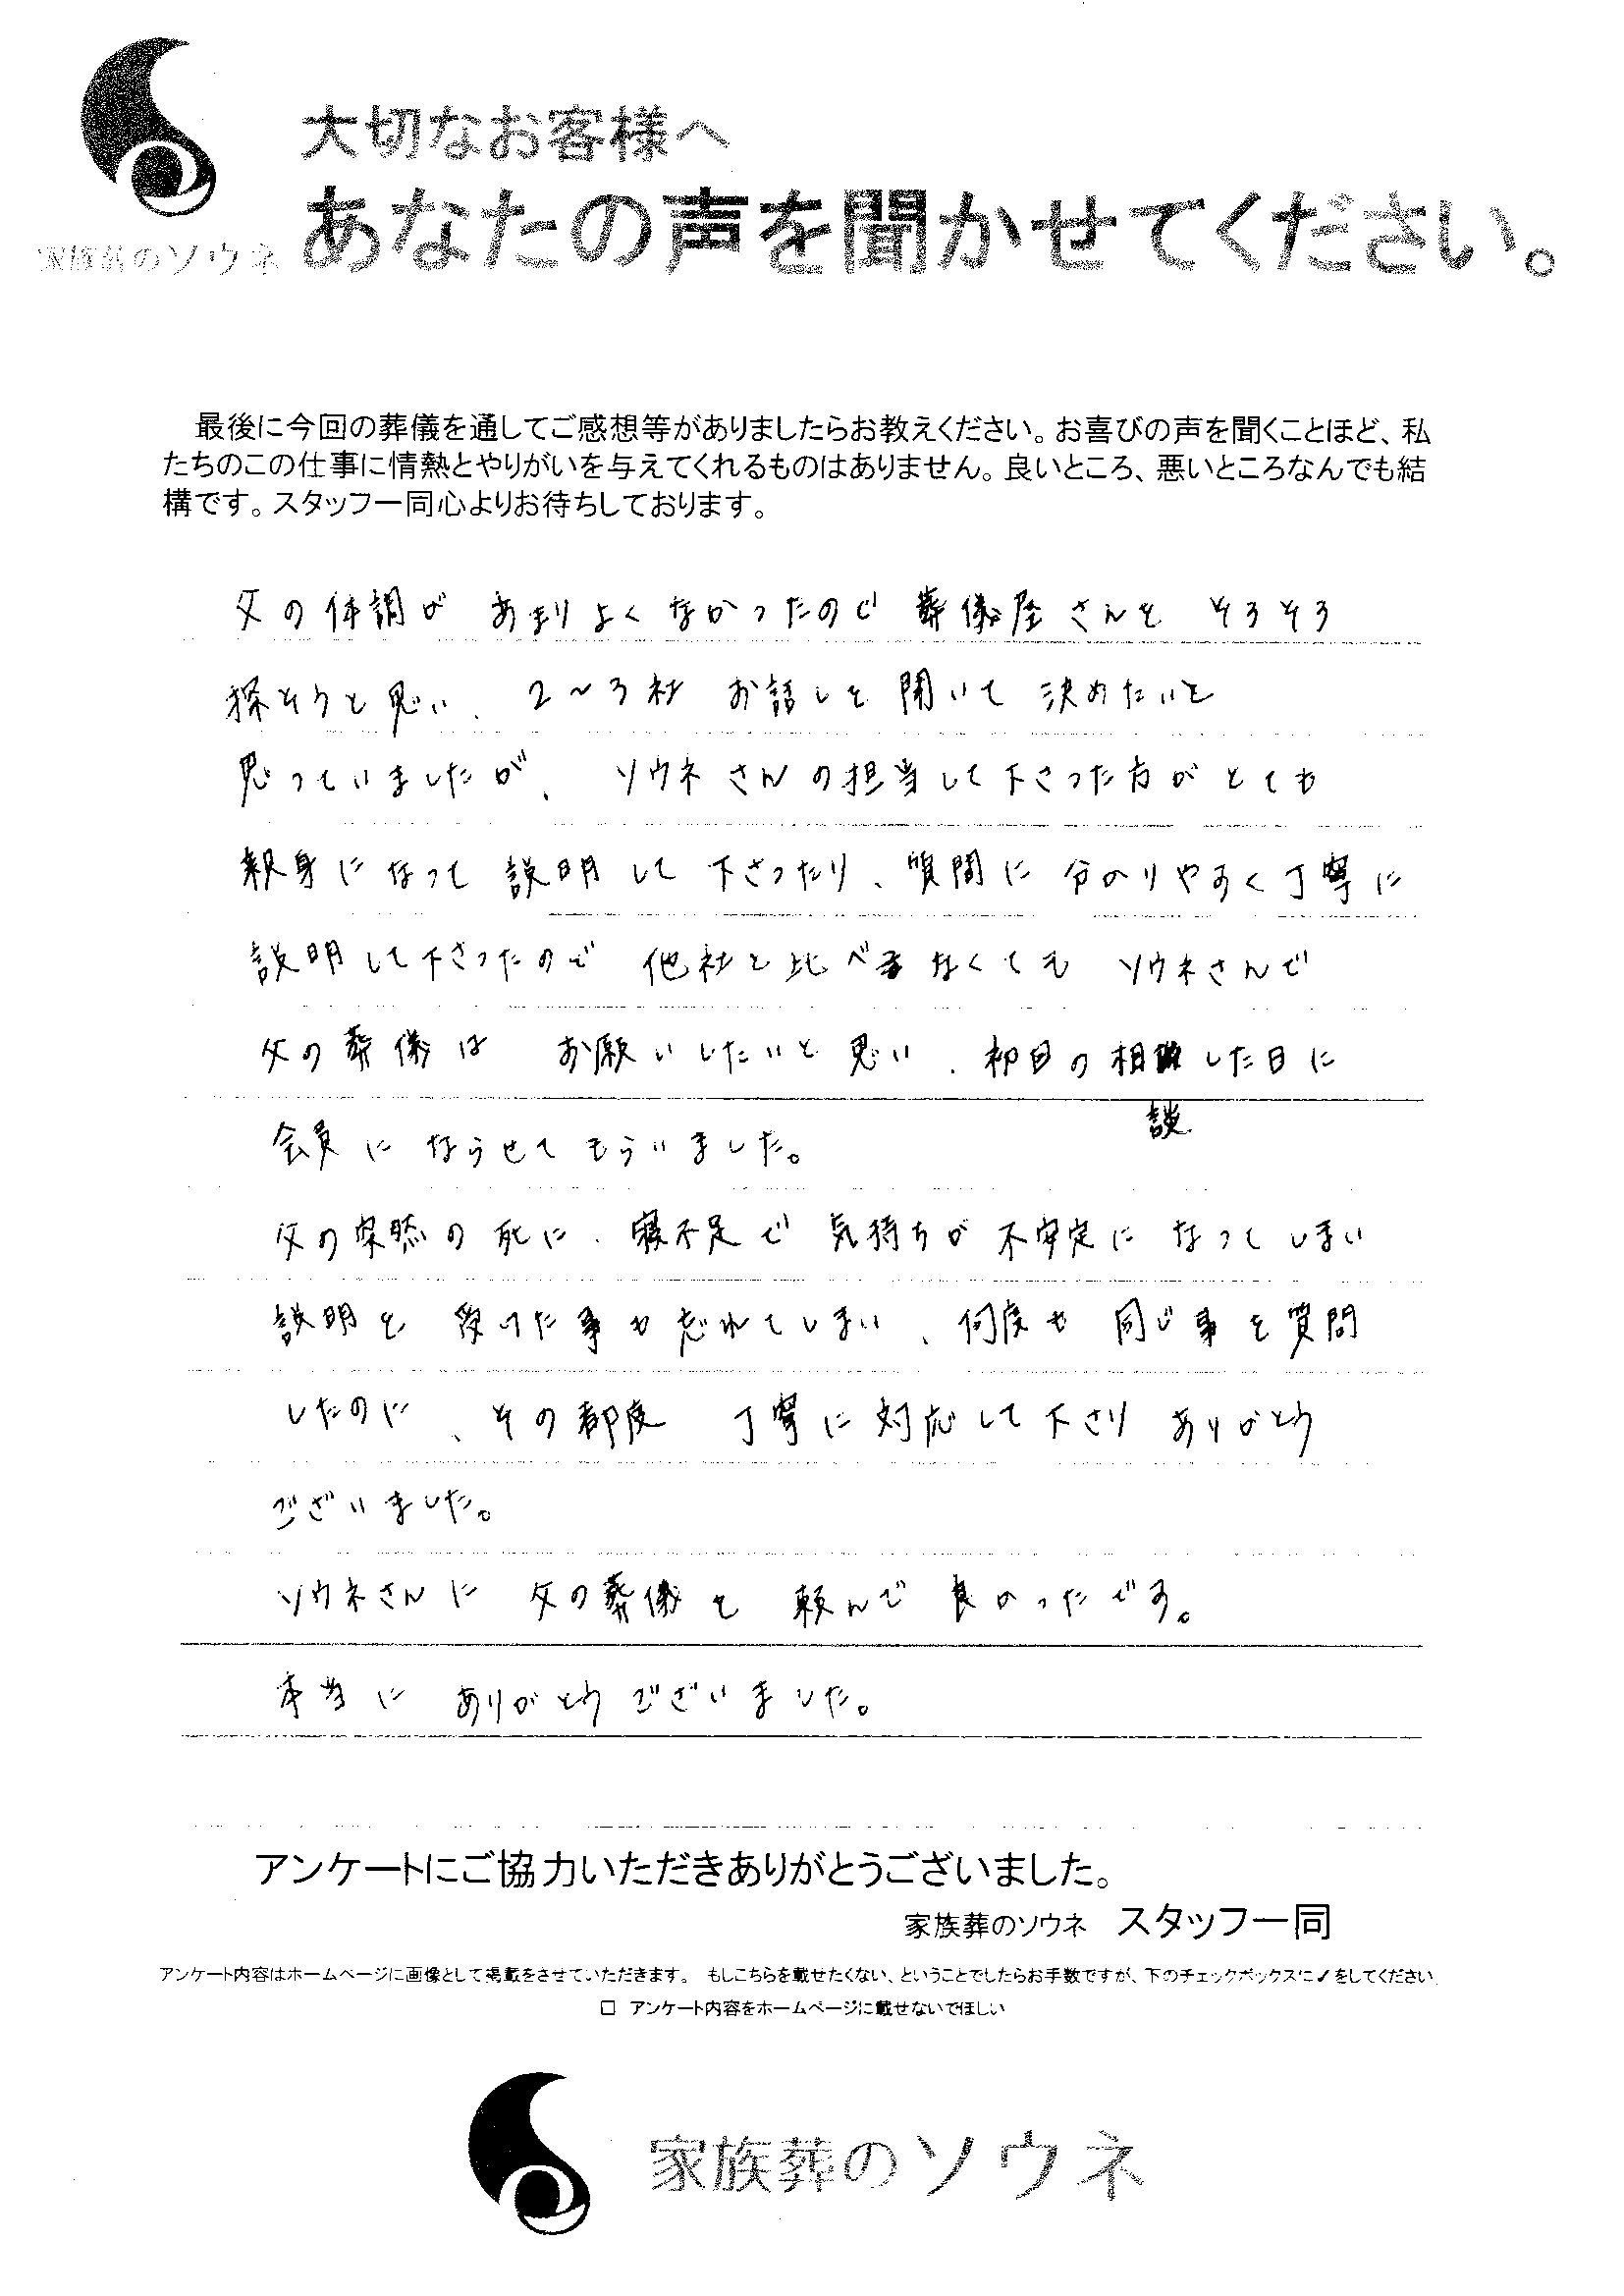 大切なお客様へ
あなたの声を聞かせてください。
家族葬のソウネ
最後に今回の葬儀を通してご感想等がありましたらお教えください。お喜びの声を聞くことほど、私
たちのこの仕事に情熱とやりがいを与えてくれるものはありません。良いところ、悪いところなんでも結
構です。スタッフ一同心よりお待ちしております。
父の体調が あまりよくなかったので 葬儀屋さんを そろそろ
探そうと思い、2〜3社 お話しを 聞いて 決めたいと
思っていましたが、 ソウネさんの担当して下さった方がとても
親身になって 説明して 下さったり、質問に 分かりやすく丁寧に
説明して下さったので 他社と比べなくても ソウネさんで
父の葬儀は お願いしたいと思い、初回の相談した日に
会員に ならせてもらいました。
父の突然の死に、寝不足で 気持ちが 不安定に なってしまい
説明を 受けた事も忘れてしまい、何度も 同じ事を質問
したのに、その都度 丁寧に対応して下さり ありがとう
ございました。
ソウネさんに 父の葬儀を 頼んで 良かったです。
本当に ありがとうございました。
アンケートにご協力いただきありがとうございました。
家族葬のソウネ スタッフ一同
アンケート内容はホームページに画像として掲載をさせていただきます。 もしこちらを載せたくない、ということでしたらお手数ですが、下のチェックボックスに✓をしてください。
□ アンケート内容をホームページに載せないでほしい
家族葬のソウネ